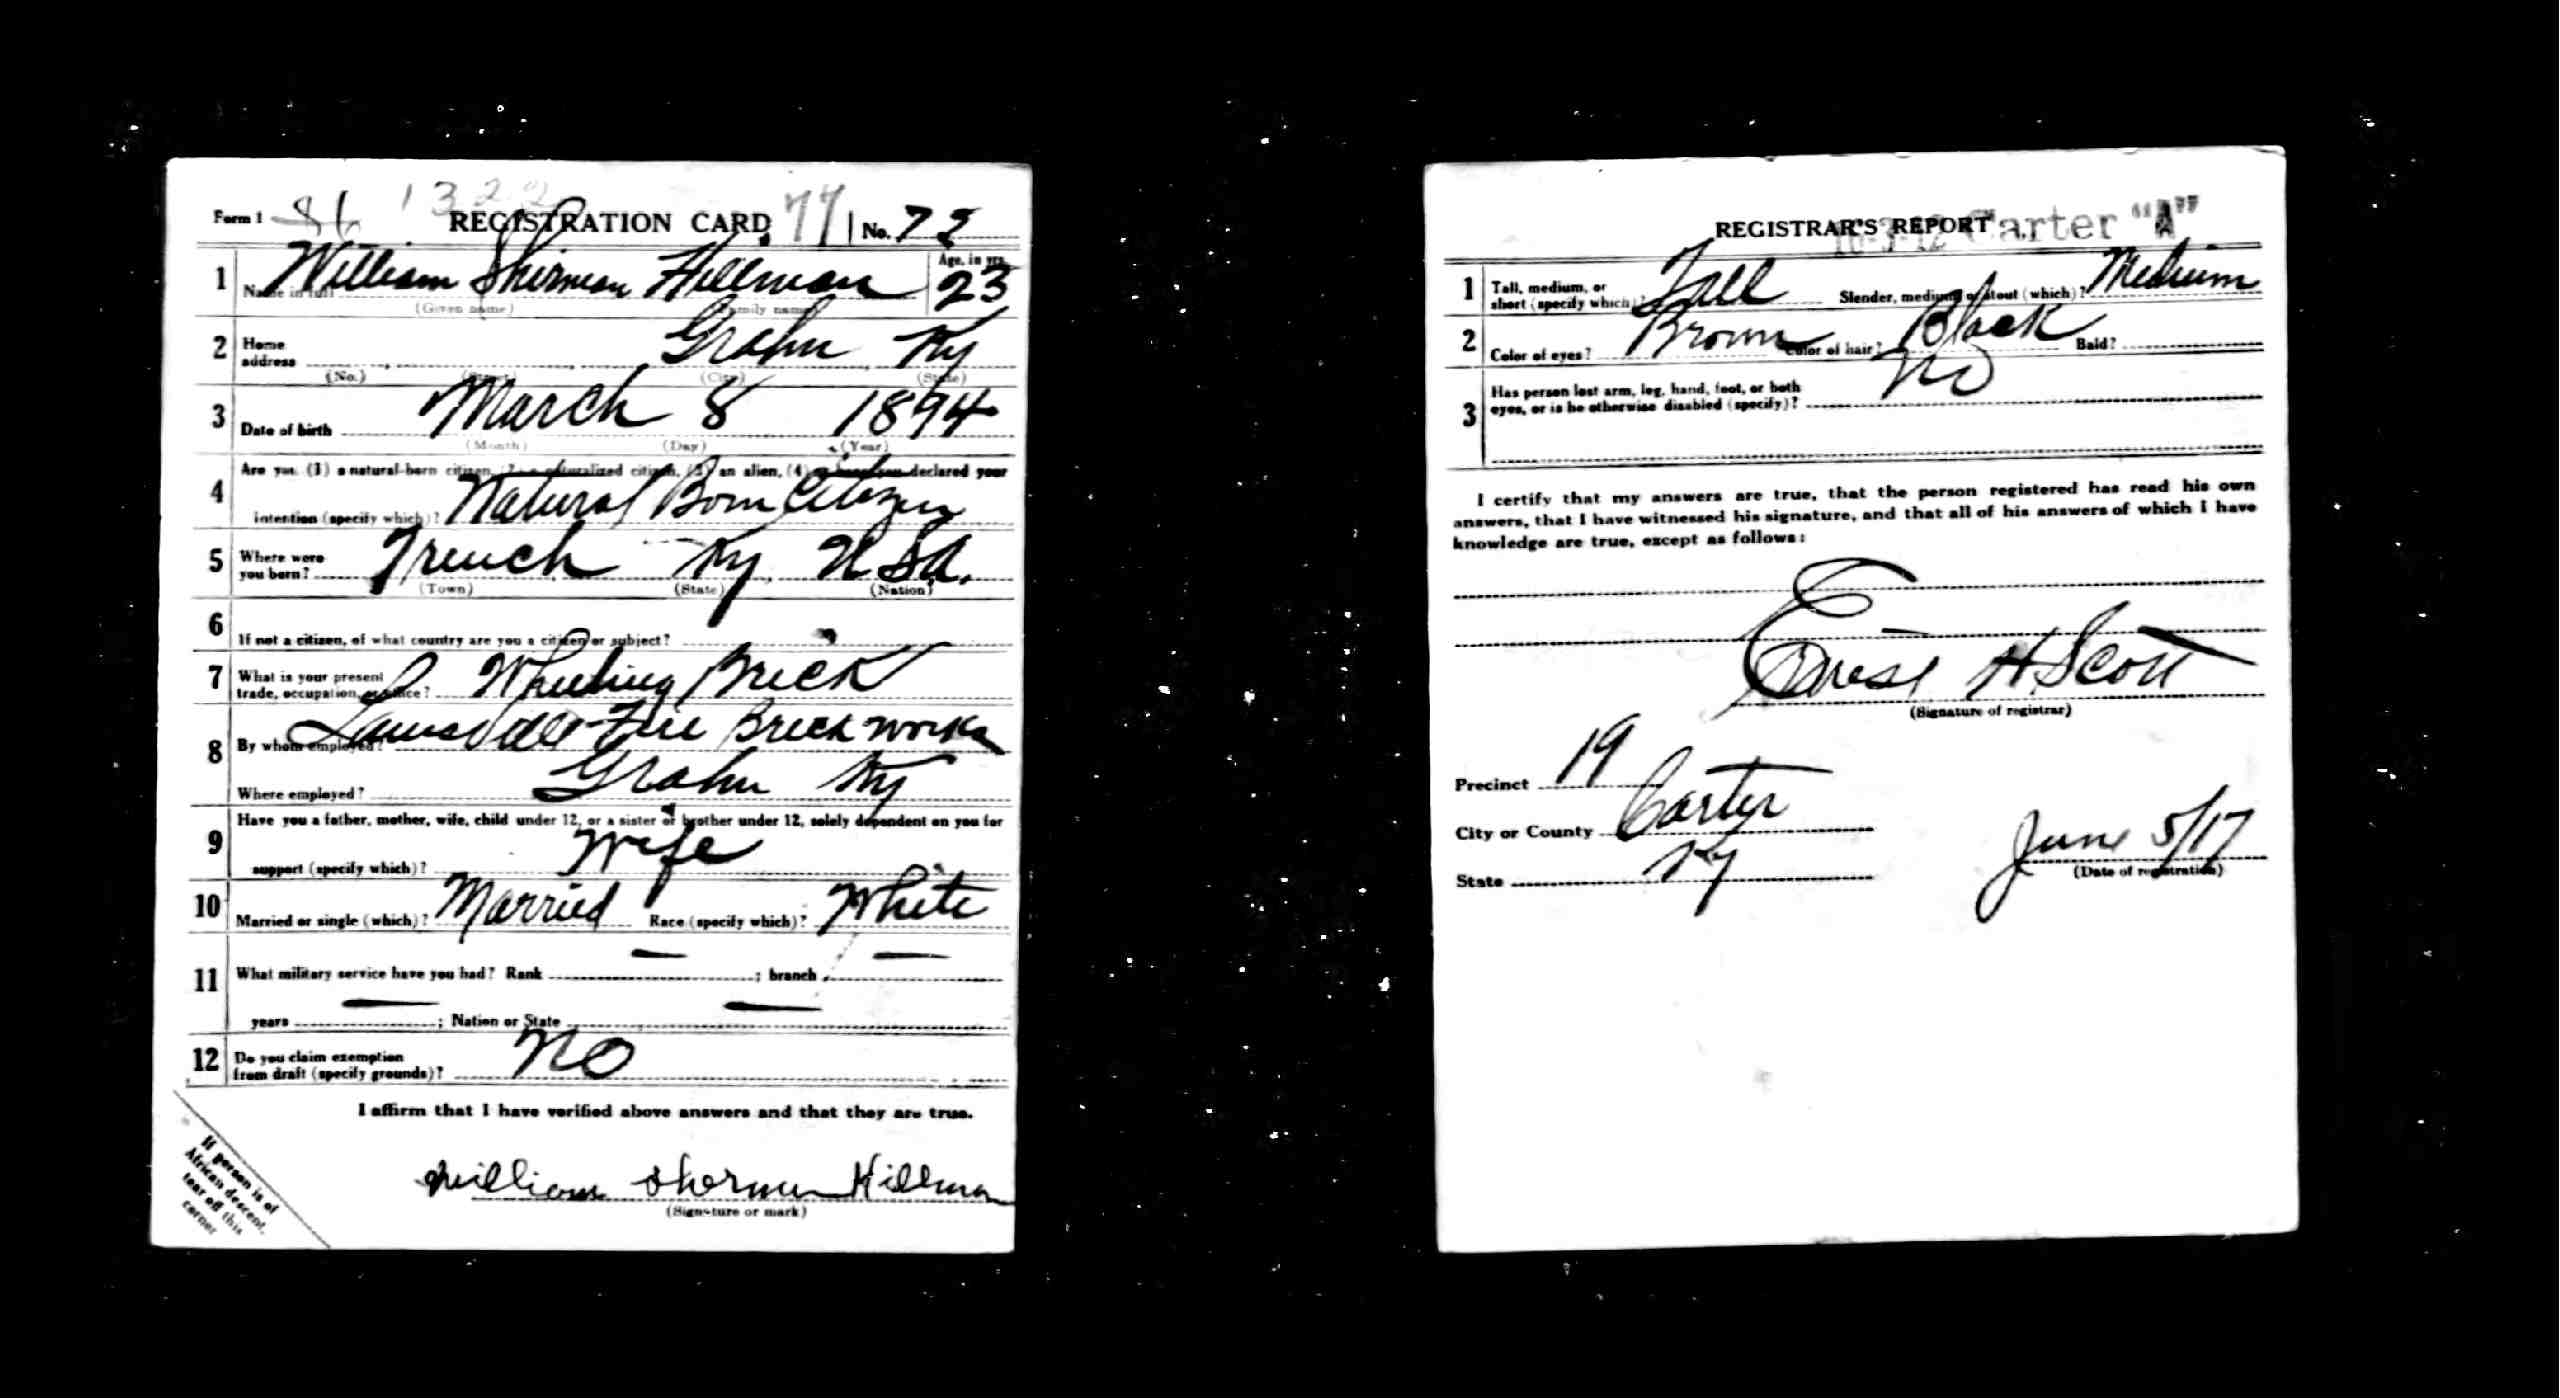 Form 1 1322 REGISTRATION CARD 77 No. 72
1 William Sherman Hillman Age, in yrs. 23
Name in full
(Given name) (Family name)
2 Home address Grahn Ky
(No.) (Street) (City) (State)
3 Date of birth March 8 1894
(Month) (Day) (Year)
4 Are you (1) a natural-born citizen, (2) a naturalized citizen, (3) an alien, (4) or have you declared your
intention (specify which)? Natural Born Citizen
5 Where were you born? Trench Ky, U S A.
(Town) (State) (Nation)
6 If not a citizen, of what country are you a citizen or subject?
7 What is your present trade, occupation, or office? Wheeling Brick
8 By whom employed? Louisville Fire Brick Works
Where employed? Grahn Ky
9 Have you a father, mother, wife, child under 12, or a sister or brother under 12, solely dependent on you for
support (specify which)? Wife
10 Married or single (which)? Married Race (specify which)? White
11 What military service have you had? Rank — ; branch —
years — ; Nation or State —
12 Do you claim exemption from draft (specify grounds)? No
I affirm that I have verified above answers and that they are true.
William Sherman Hillman
(Signature or mark)
If person is of
African descent,
tear off this
corner
REGISTRAR'S REPORT 16-3-12 Carter "A"
1 Tall, medium, or short (specify which)? Tall Slender, medium, or stout (which)? Medium
2 Color of eyes? Brown Color of hair? Black Bald?
3 Has person lost arm, leg, hand, foot, or both
eyes, or is he otherwise disabled (specify)? No
I certify that my answers are true, that the person registered has read his own
answers, that I have witnessed his signature, and that all of his answers of which I have
knowledge are true, except as follows:
Ernest H Scott
(Signature of registrar)
Precinct 19
City or County Carter
State Ky
June 5/17
(Date of registration)